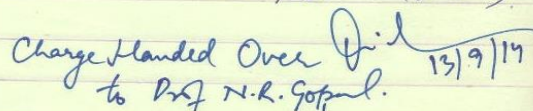 Charge Handed Over 13/9/19
to Prof N.R. Gopal.